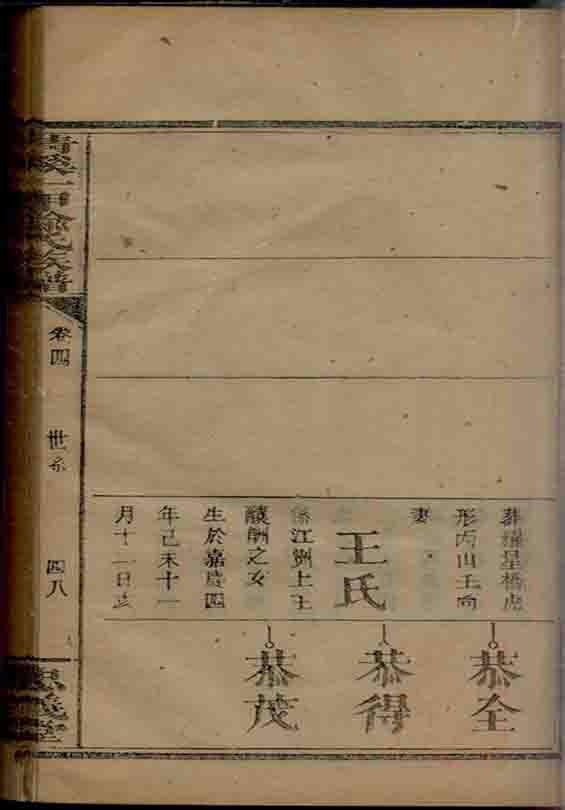 葬耀星橋虎
形丙山壬向
妻
王氏
江劉上王
酬之女
生於嘉慶四
年己未十一
月十一日亥
恭全
恭得
恭茂
溪一甲氏族譜
卷四
世系
四八
義堂